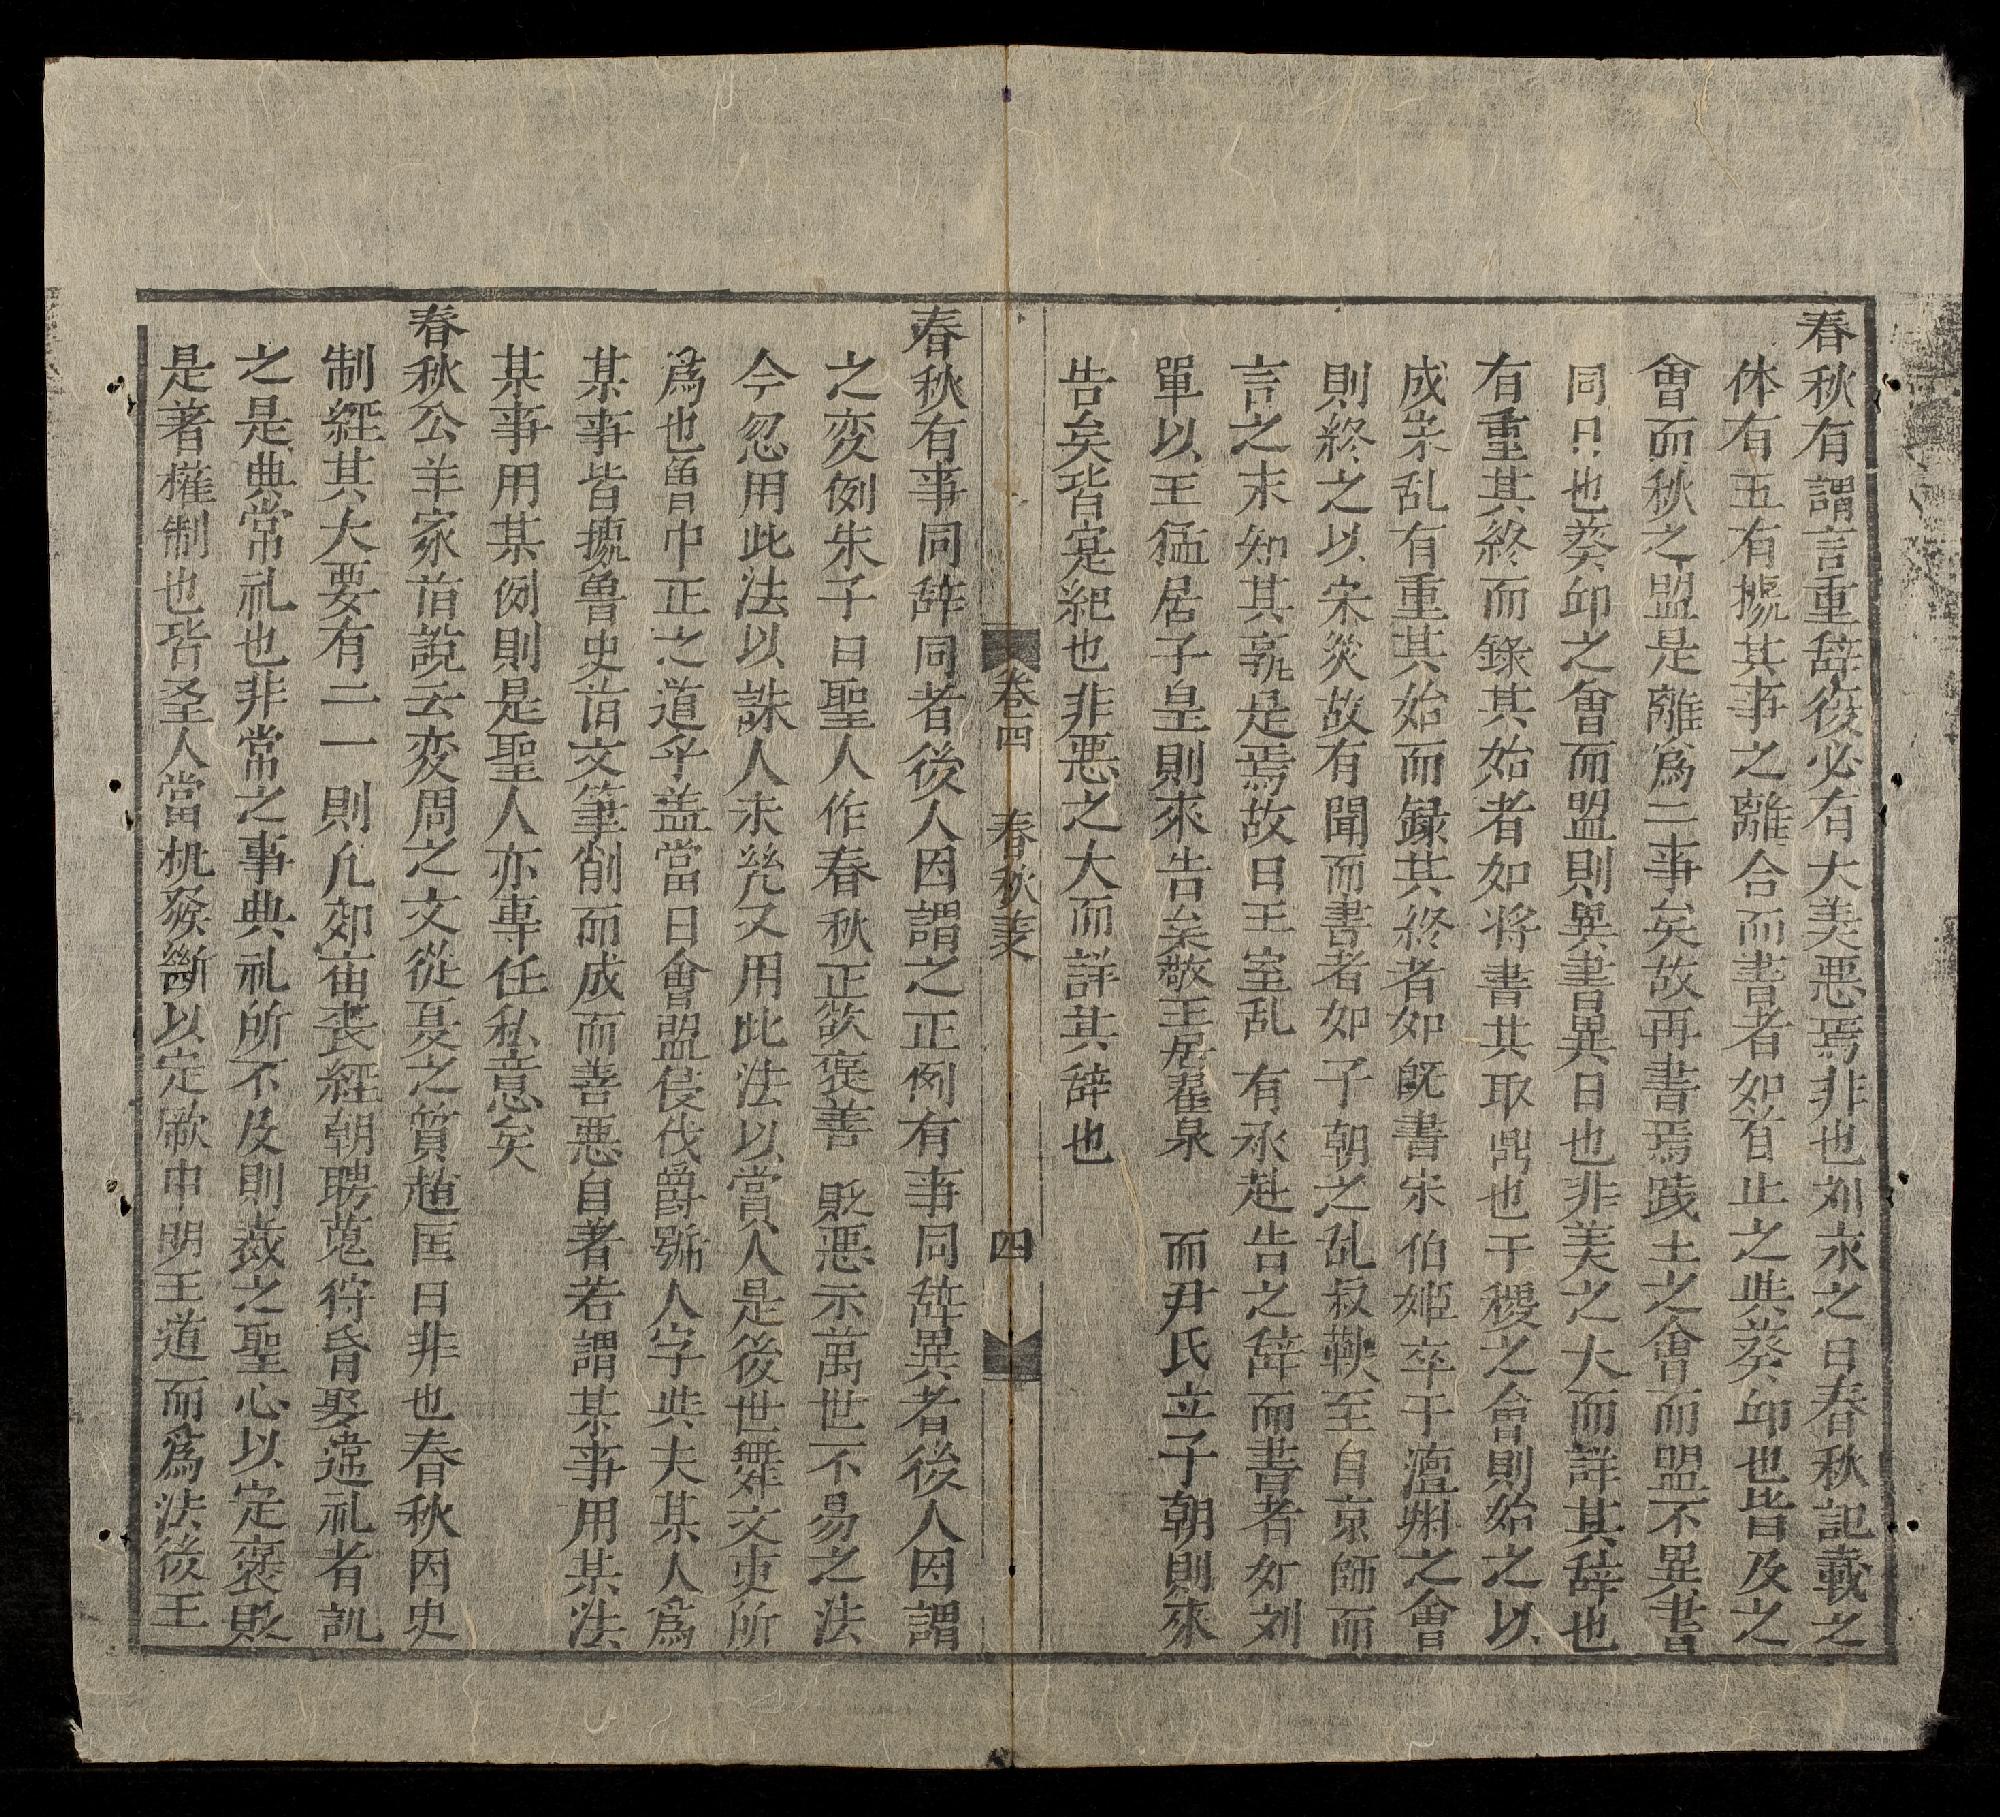 春秋有謂言重辞複必有大美悪焉非也刘永之曰春秋記載之
体有五有㨿其事之離合而書者如首止之與葵邱也皆及之
會而秋之盟是離爲二事矣故再書焉践土之會而盟不異書
同日也葵邱之會而盟則異書異日也非美之大而詳其辞也
有重其終而録其始者如将書其取鼎也于稷之會則始之以
成宋乱有重其始而録其終者如既書宋伯姬卒于澶渊之會
則終之以宋災故有聞而書者如子朝之乱叔鞅至自京師而
言之末知其孰是焉故曰王室乱有承赴告之辞而書者如刘
單以王猛居于皇則來告矣敬王居翟泉 而尹氏立子朝則來
告矣皆寔紀也非悪之大而詳其辞也
卷四 春秋義 四
春秋有事同辞同者後人因謂之正例有事同辞異者後人因謂
之変例朱子曰聖人作春秋正欲褒善貶悪示萬世不易之法
今忽用此法以誅人未㡬又用此法以賞人是後世舞文吏所
爲也曽中正之道乎盖當日會盟侵伐爵號人字與夫某人爲
某事皆㨿魯史旧文筆削而成而善悪自著若謂某事用某法
某事用某例則是聖人亦専任私意矣
春秋公羊家旧說云変周之文從夏之質趙匡曰非也春秋因史
制經其大要有二一則凢郊庙丧経朝聘蒐狩昏娶違礼者訊
之是典常礼也非常之事典礼所不及則裁之聖心以定褒貶
是著權制也皆圣人當机發断以定厥中明王道而爲法後王